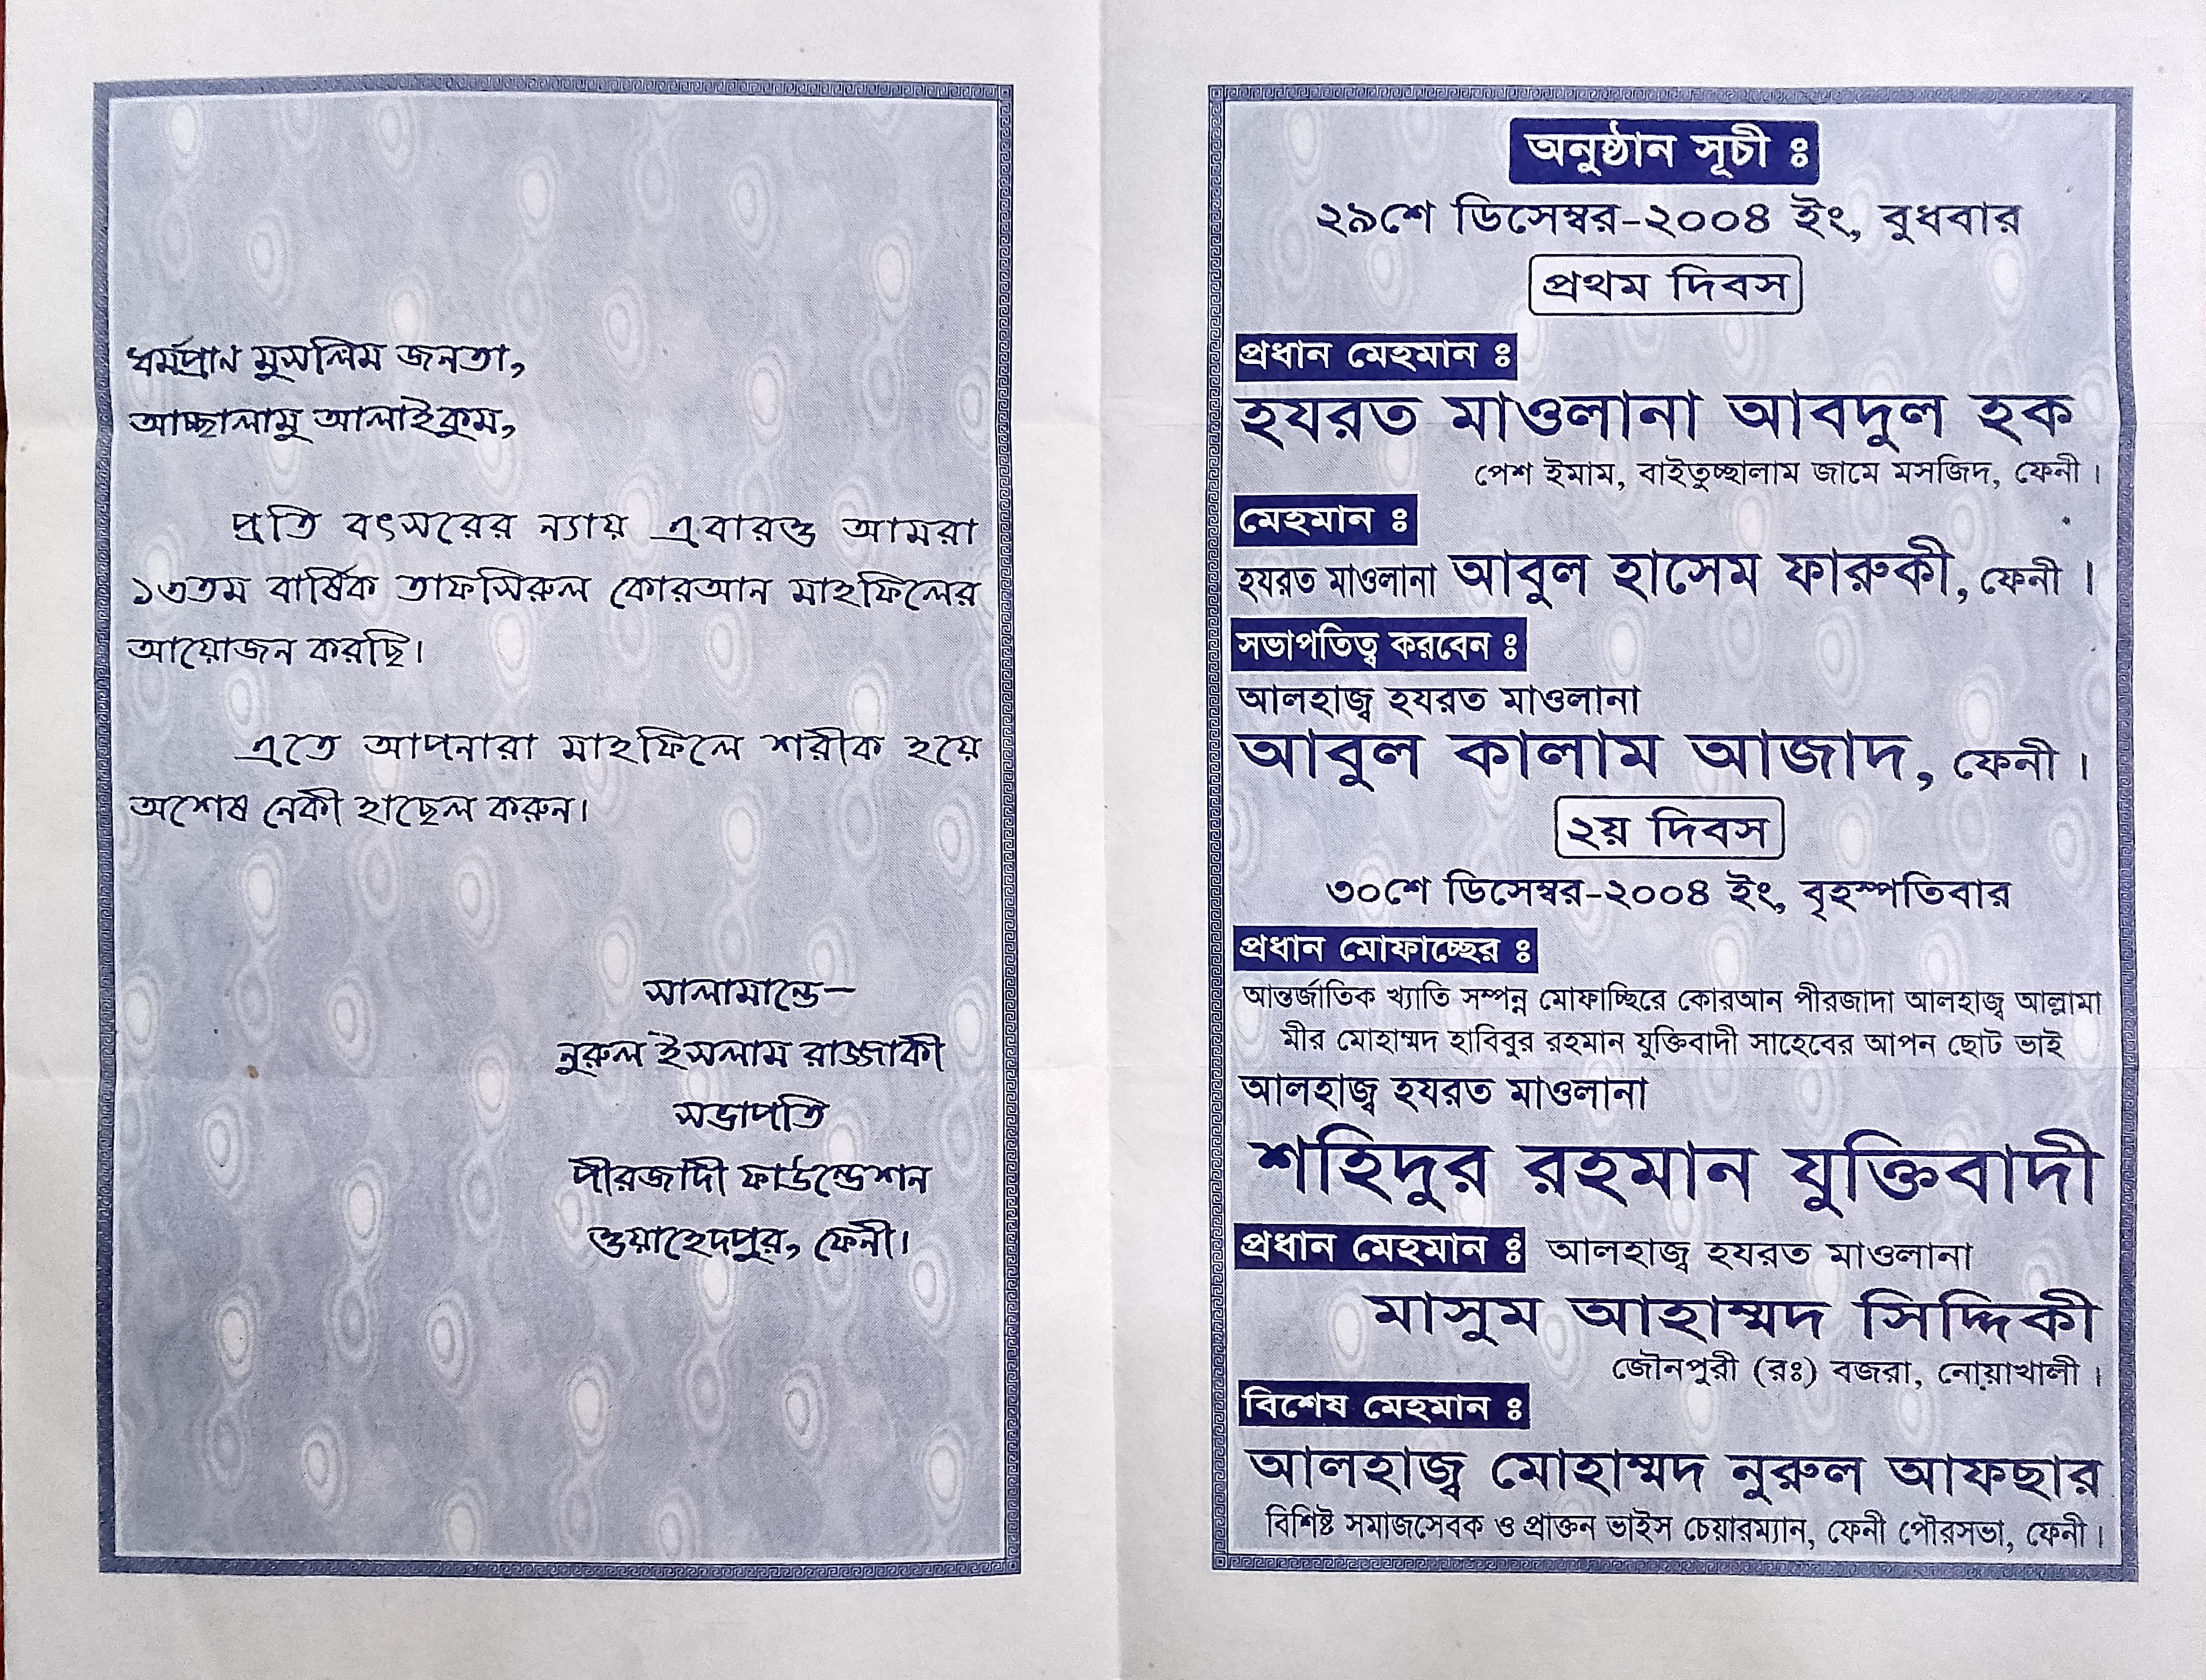 ধর্মপ্রাণ মুসলিম জনতা,
আচ্ছালামু আলাইকুম,
প্রতি বৎসরের ন্যায় এবারও আমরা
১৩তম বার্ষিক তাফসিরুল কোরআন মাহফিলের
আয়োজন করছি।
এতে আপনারা মাহফিলে শরীক হয়ে
অশেষ নেকী হাছেল করুন।
সালামান্তে-
নুরুল ইসলাম রাজ্জাকী
সভাপতি
পীরজাদী ফাউন্ডেশন
ওয়াহেদপুর, ফেনী।
অনুষ্ঠান সূচী ঃ
২৯শে ডিসেম্বর-২০০৪ ইং, বুধবার
প্রথম দিবস
প্রধান মেহমান ঃ
হযরত মাওলানা আবদুল হক
পেশ ইমাম, বাইতুচ্ছালাম জামে মসজিদ, ফেনী।
মেহমান ঃ
হযরত মাওলানা আবুল হাসেম ফারুকী, ফেনী।
সভাপতিত্ব করবেন ঃ
আলহাজ্ব হযরত মাওলানা
আবুল কালাম আজাদ, ফেনী।
২য় দিবস
৩০শে ডিসেম্বর-২০০৪ ইং, বৃহস্পতিবার
প্রধান মোফাচ্ছের ঃ
আন্তর্জাতিক খ্যাতি সম্পন্ন মোফাচ্ছিরে কোরআন পীরজাদা আলহাজ্ব আল্লামা
মীর মোহাম্মদ হাবিবুর রহমান যুক্তিবাদী সাহেবের আপন ছোট ভাই
আলহাজ্ব হযরত মাওলানা
শহিদুর রহমান যুক্তিবাদী
প্রধান মেহমান ঃ আলহাজ্ব হযরত মাওলানা
মাসুম আহাম্মদ সিদ্দিকী
জৌনপুরী (রঃ) বজরা, নোয়াখালী।
বিশেষ মেহমান ঃ
আলহাজ্ব মোহাম্মদ নুরুল আফছার
বিশিষ্ট সমাজসেবক ও প্রাক্তন ভাইস চেয়ারম্যান, ফেনী পৌরসভা, ফেনী।